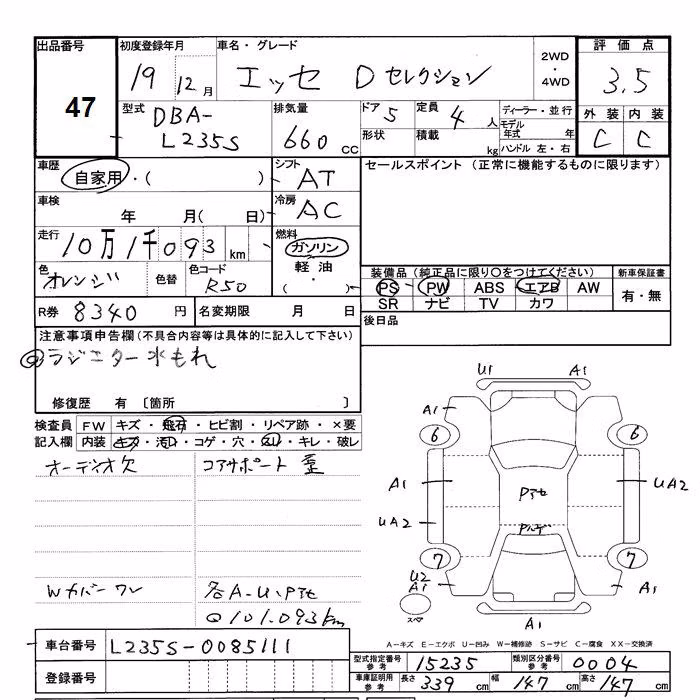 出品番号 47
初度登録年月 19 12月
車名・グレード エッセ Dセレクション
2WD・4WD
評価点 3.5
型式 DBA-L235S
排気量 660cc
ドア 5
形状
定員 4人
積載 kg
ディーラー・並行
モデル年式 年
ハンドル 左・右
外装 内装
C C
車歴 自家用・( )
シフト AT
セールスポイント (正常に機能するものに限ります)
車検 年 月( 日)
冷房 AC
走行 10万1千093km
燃料 ガソリン
軽油・( )
色 オレンジ 色替 色コード R50
装備品(純正品に限り〇をつけてください) 新車保証書
PS PW ABS エアB AW 有・無
SR ナビ TV カワ
R券 8340円 名変期限 月 日
後日品
注意事項申告欄(不具合内容等は具体的に記入して下さい)
@ラジエター水もれ
修復歴 有 〔箇所 〕
検査員記入欄
FW キズ・飛石・ヒビ割・リペア跡・×要
内装 キズ・汚レ・コゲ・穴・スレ・キレ・破レ
オーディオ欠 コアサポート歪
Wカバーワレ 各A-U・Pアセ
@101.093km
U1 A1
A1
6 6
A1 Pアセ UA2
UA2 Pハゲ
7 7
U2 A1 A1
スペア A1
A-キズ E-エクボ U-凹み W-補修跡 S-サビ C-腐食 XX-交換済
車台番号 L235S-0085111
登録番号
型式指定番号参考 15235 類別区分番号参考 0004
車庫証明用参考 長さ 339cm 幅 147cm 高さ 147cm